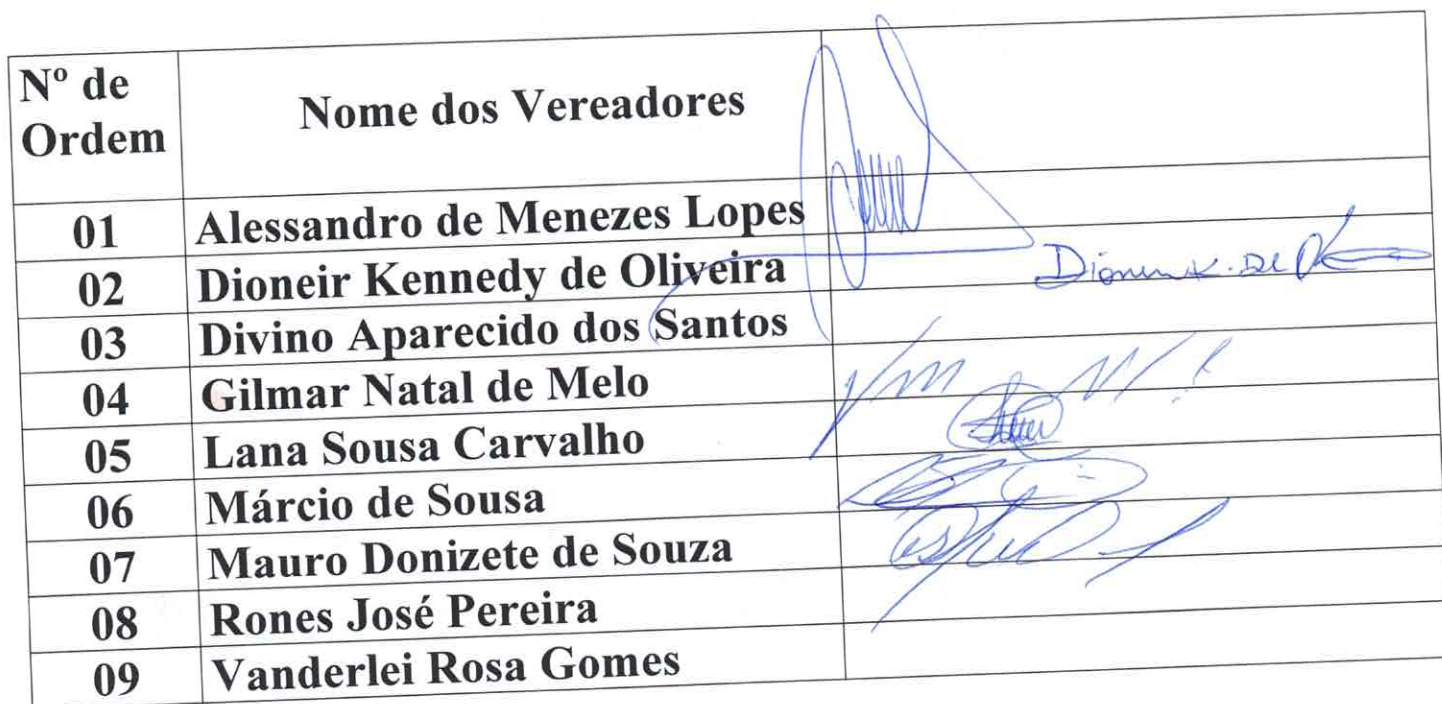 Nº de
Ordem
Nome dos Vereadores
01 Alessandro de Menezes Lopes
02 Dioneir Kennedy de Oliveira
03 Divino Aparecido dos Santos
04 Gilmar Natal de Melo
05 Lana Sousa Carvalho
06 Márcio de Sousa
07 Mauro Donizete de Souza
08 Rones José Pereira
09 Vanderlei Rosa Gomes